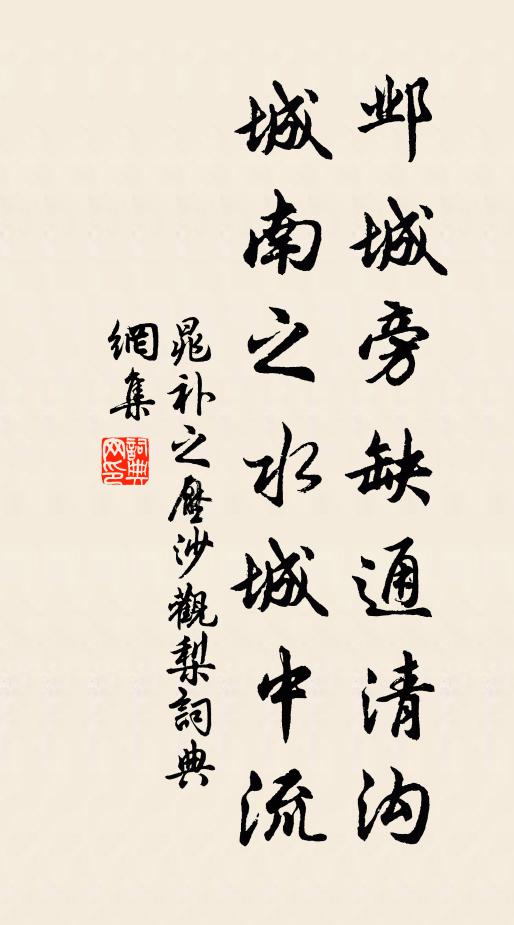 邺城旁缺通清沟
城南之水城中流
晁补之壓沙觀梨詞典
網集
詞典網印